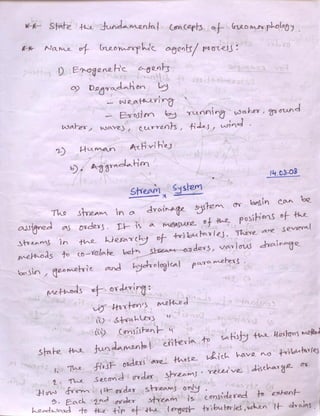 ** State the fundamental concepts of Geomorphology
** Name of Geomorphic agents/ process:
1) Exogenetic agents
a) Degradation by
- Weathering
- Erosion by running water, ground
water, waves, currents, tides, wind.
2) Human Activities
b) Aggradation
14.03.08
Stream System
The stream in a drainage system or basin can be
assigned as orders. It is a measure of the positions of the
streams in the hierarchy of tributaries. There are several
methods to co-relate betn stream orders, various drainage
basin, geometric and hydrological parameters.
Methods of ordering:
i) Horton's method
ii) Strahlers "
iii) Consistent "
State the fundamental criteria to satisfy the Hortons method
1. The first orders are these which have no tributaries
2. The second order streams receive discharge or
flow from 1st order streams only.
3. Each 2nd order stream is considered to extent
headward to the tip of the longest tributaries, when it drains